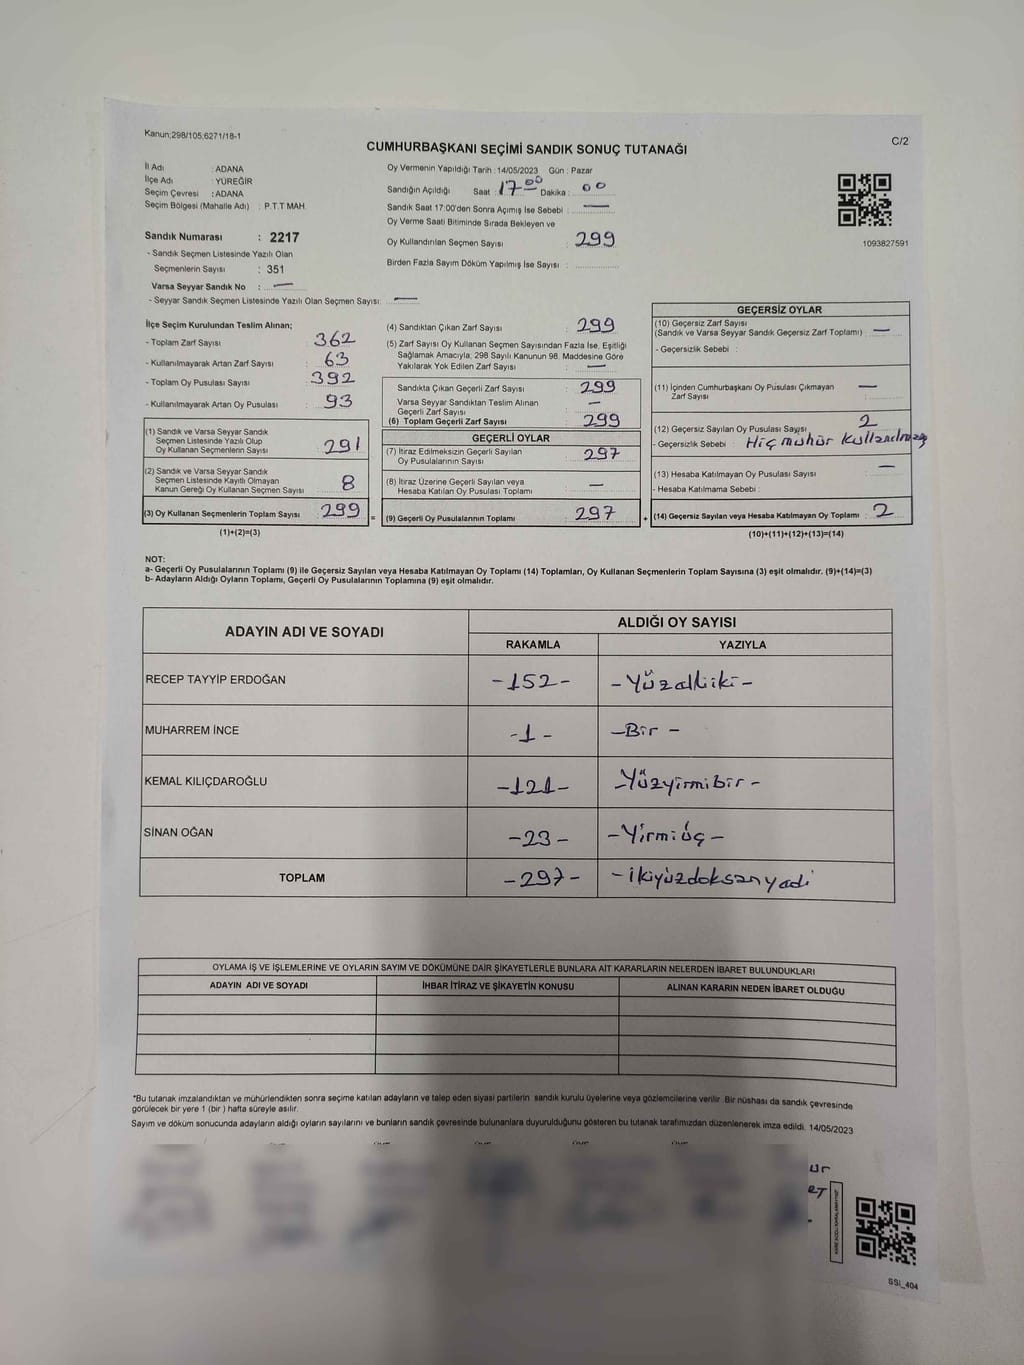 Kanun;298/105,6271/18-1
C/2
CUMHURBAŞKANI SEÇİMİ SANDIK SONUÇ TUTANAĞI
İl Adı : ADANA
İlçe Adı : YÜREĞİR
Seçim Çevresi : ADANA
Seçim Bölgesi (Mahalle Adı) : P.T.T MAH.
Sandık Numarası : 2217
- Sandık Seçmen Listesinde Yazılı Olan
Seçmenlerin Sayısı : 351
Varsa Seyyar Sandık No : —
- Seyyar Sandık Seçmen Listesinde Yazılı Olan Seçmen Sayısı: —
Oy Vermenin Yapıldığı Tarih : 14/05/2023 Gün : Pazar
Sandığın Açıldığı Saat : 17 00 Dakika : 00
Sandık Saat 17:00'den Sonra Açımış İse Sebebi : —
Oy Verme Saati Bitiminde Sırada Bekleyen ve
Oy Kullandırılan Seçmen Sayısı : 299
Birden Fazla Sayım Döküm Yapılmış İse Sayısı :
1093827591
İlçe Seçim Kurulundan Teslim Alınan;
- Toplam Zarf Sayısı : 362
- Kullanılmayarak Artan Zarf Sayısı : 63
- Toplam Oy Pusulası Sayısı : 392
- Kullanılmayarak Artan Oy Pusulası : 93
(1) Sandık ve Varsa Seyyar Sandık
Seçmen Listesinde Yazılı Olup
Oy Kullanan Seçmenlerin Sayısı : 291
(2) Sandık ve Varsa Seyyar Sandık
Seçmen Listesinde Kayıtlı Olmayan
Kanun Gereği Oy Kullanan Seçmen Sayısı : 8
(3) Oy Kullanan Seçmenlerin Toplam Sayısı : 299
(1)+(2)=(3)
=
(4) Sandıktan Çıkan Zarf Sayısı : 299
(5) Zarf Sayısı Oy Kullanan Seçmen Sayısından Fazla İse, Eşitliği
Sağlamak Amacıyla, 298 Sayılı Kanunun 98. Maddesine Göre
Yakılarak Yok Edilen Zarf Sayısı : —
Sandıkta Çıkan Geçerli Zarf Sayısı : 299
Varsa Seyyar Sandıktan Teslim Alınan
Geçerli Zarf Sayısı : —
(6) Toplam Geçerli Zarf Sayısı : 299
GEÇERLİ OYLAR
(7) İtiraz Edilmeksizin Geçerli Sayılan
Oy Pusulalarının Sayısı : 297
(8) İtiraz Üzerine Geçerli Sayılan veya
Hesaba Katılan Oy Pusulası Toplamı : —
(9) Geçerli Oy Pusulalarının Toplamı : 297
+
GEÇERSİZ OYLAR
(10) Geçersiz Zarf Sayısı
(Sandık ve Varsa Seyyar Sandık Geçersiz Zarf Toplamı) : —
- Geçersizlik Sebebi :
(11) İçinden Cumhurbaşkanı Oy Pusulası Çıkmayan
Zarf Sayısı : —
(12) Geçersiz Sayılan Oy Pusulası Sayısı : 2
- Geçersizlik Sebebi : Hiç mühür
(13) Hesaba Katılmayan Oy Pusulası Sayısı : —
- Hesaba Katılmama Sebebi :
(14) Geçersiz Sayılan veya Hesaba Katılmayan Oy Toplamı : 2
(10)+(11)+(12)+(13)=(14)
NOT:
a- Geçerli Oy Pusulalarının Toplamı (9) ile Geçersiz Sayılan veya Hesaba Katılmayan Oy Toplamı (14) Toplamları, Oy Kullanan Seçmenlerin Toplam Sayısına (3) eşit olmalıdır. (9)+(14)=(3)
b- Adayların Aldığı Oyların Toplamı, Geçerli Oy Pusulalarının Toplamına (9) eşit olmalıdır.
ADAYIN ADI VE SOYADI
ALDIĞI OY SAYISI
RAKAMLA YAZIYLA
RECEP TAYYİP ERDOĞAN -152- -Yüzelliiki-
MUHARREM İNCE -1- -Bir-
KEMAL KILIÇDAROĞLU -121- -Yüzyirmibir-
SİNAN OĞAN -23- -Yirmiüç-
TOPLAM -297- -ikiyüzdoksanyedi
OYLAMA İŞ VE İŞLEMLERİNE VE OYLARIN SAYIM VE DÖKÜMÜNE DAİR ŞİKAYETLERLE BUNLARA AİT KARARLARIN NELERDEN İBARET BULUNDUKLARI
ADAYIN ADI VE SOYADI İHBAR İTİRAZ VE ŞİKAYETİN KONUSU ALINAN KARARIN NEDEN İBARET OLDUĞU
*Bu tutanak imzalandıktan ve mühürlendikten sonra seçime katılan adayların ve talep eden siyasi partilerin sandık kurulu üyelerine veya gözlemcilerine verilir. Bir nüshası da sandık çevresinde
görülecek bir yere 1 (bir ) hafta süreyle asılır.
Sayım ve döküm sonucunda adayların aldığı oyların sayılarını ve bunların sandık çevresinde bulunanlara duyurulduğunu gösteren bu tutanak tarafımızdan düzenlenerek imza edildi. 14/05/2023
SSI_404